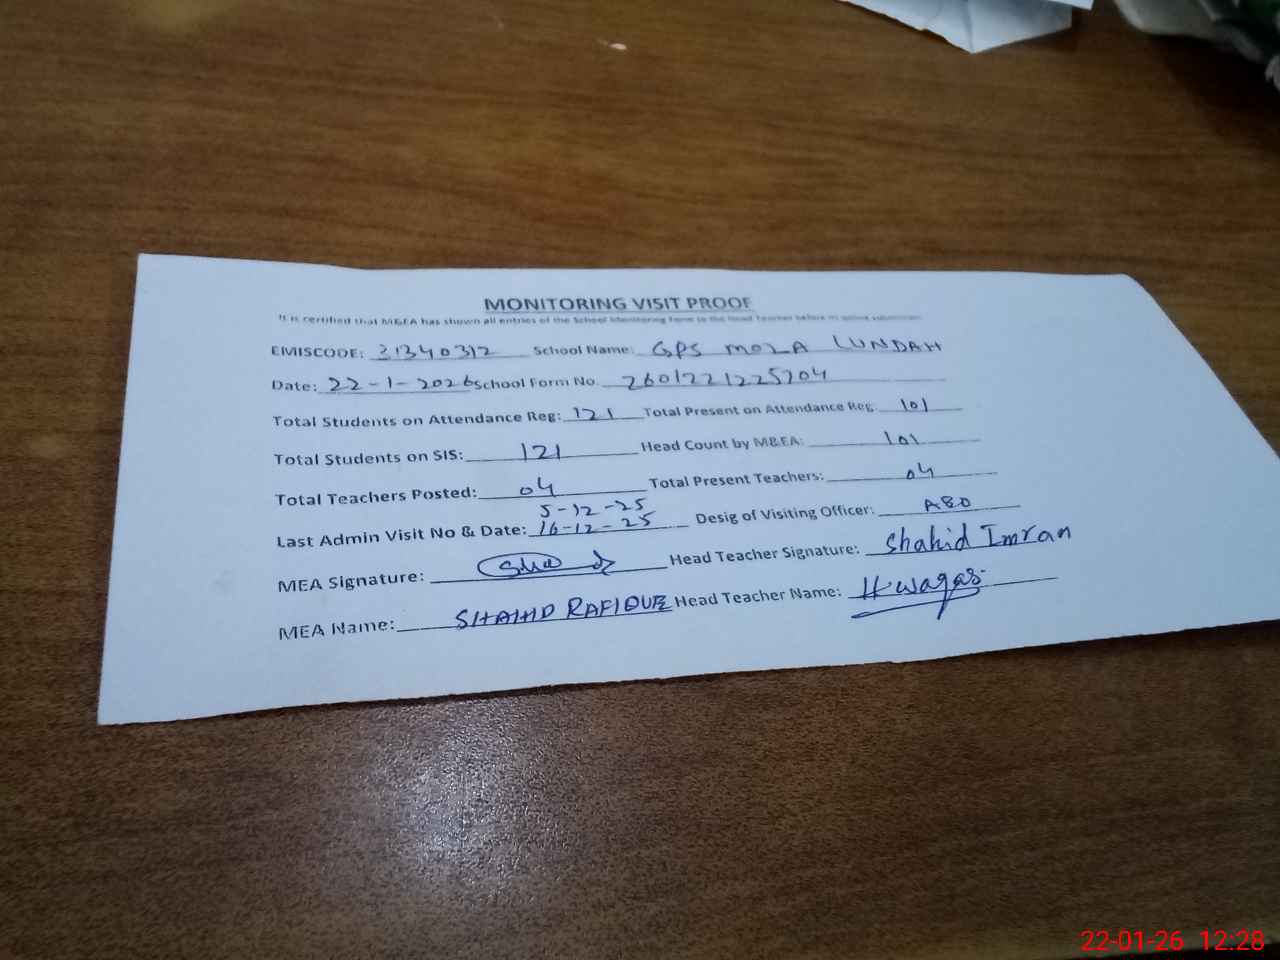 MONITORING VISIT PROOF
It is certified that M&EA has shown all entries of the School Monitoring Form to the Head Teacher before its online submission.
EMISCODE: 31340312 School Name: GPS MOZA LUNDAH
Date: 22-1-2026 School Form No. 2601221225204
Total Students on Attendance Reg: 121 Total Present on Attendance Reg: 101
Total Students on SIS: 121 Head Count by M&EA: 101
Total Teachers Posted: 04 Total Present Teachers: 04
5-12-25
Last Admin Visit No & Date: 16-12-25 Desig of Visiting Officer: AEO
MEA Signature: Head Teacher Signature: Shahid Imran
MEA Name: SHAHID RAFIQUE Head Teacher Name:
22-01-26 12:28